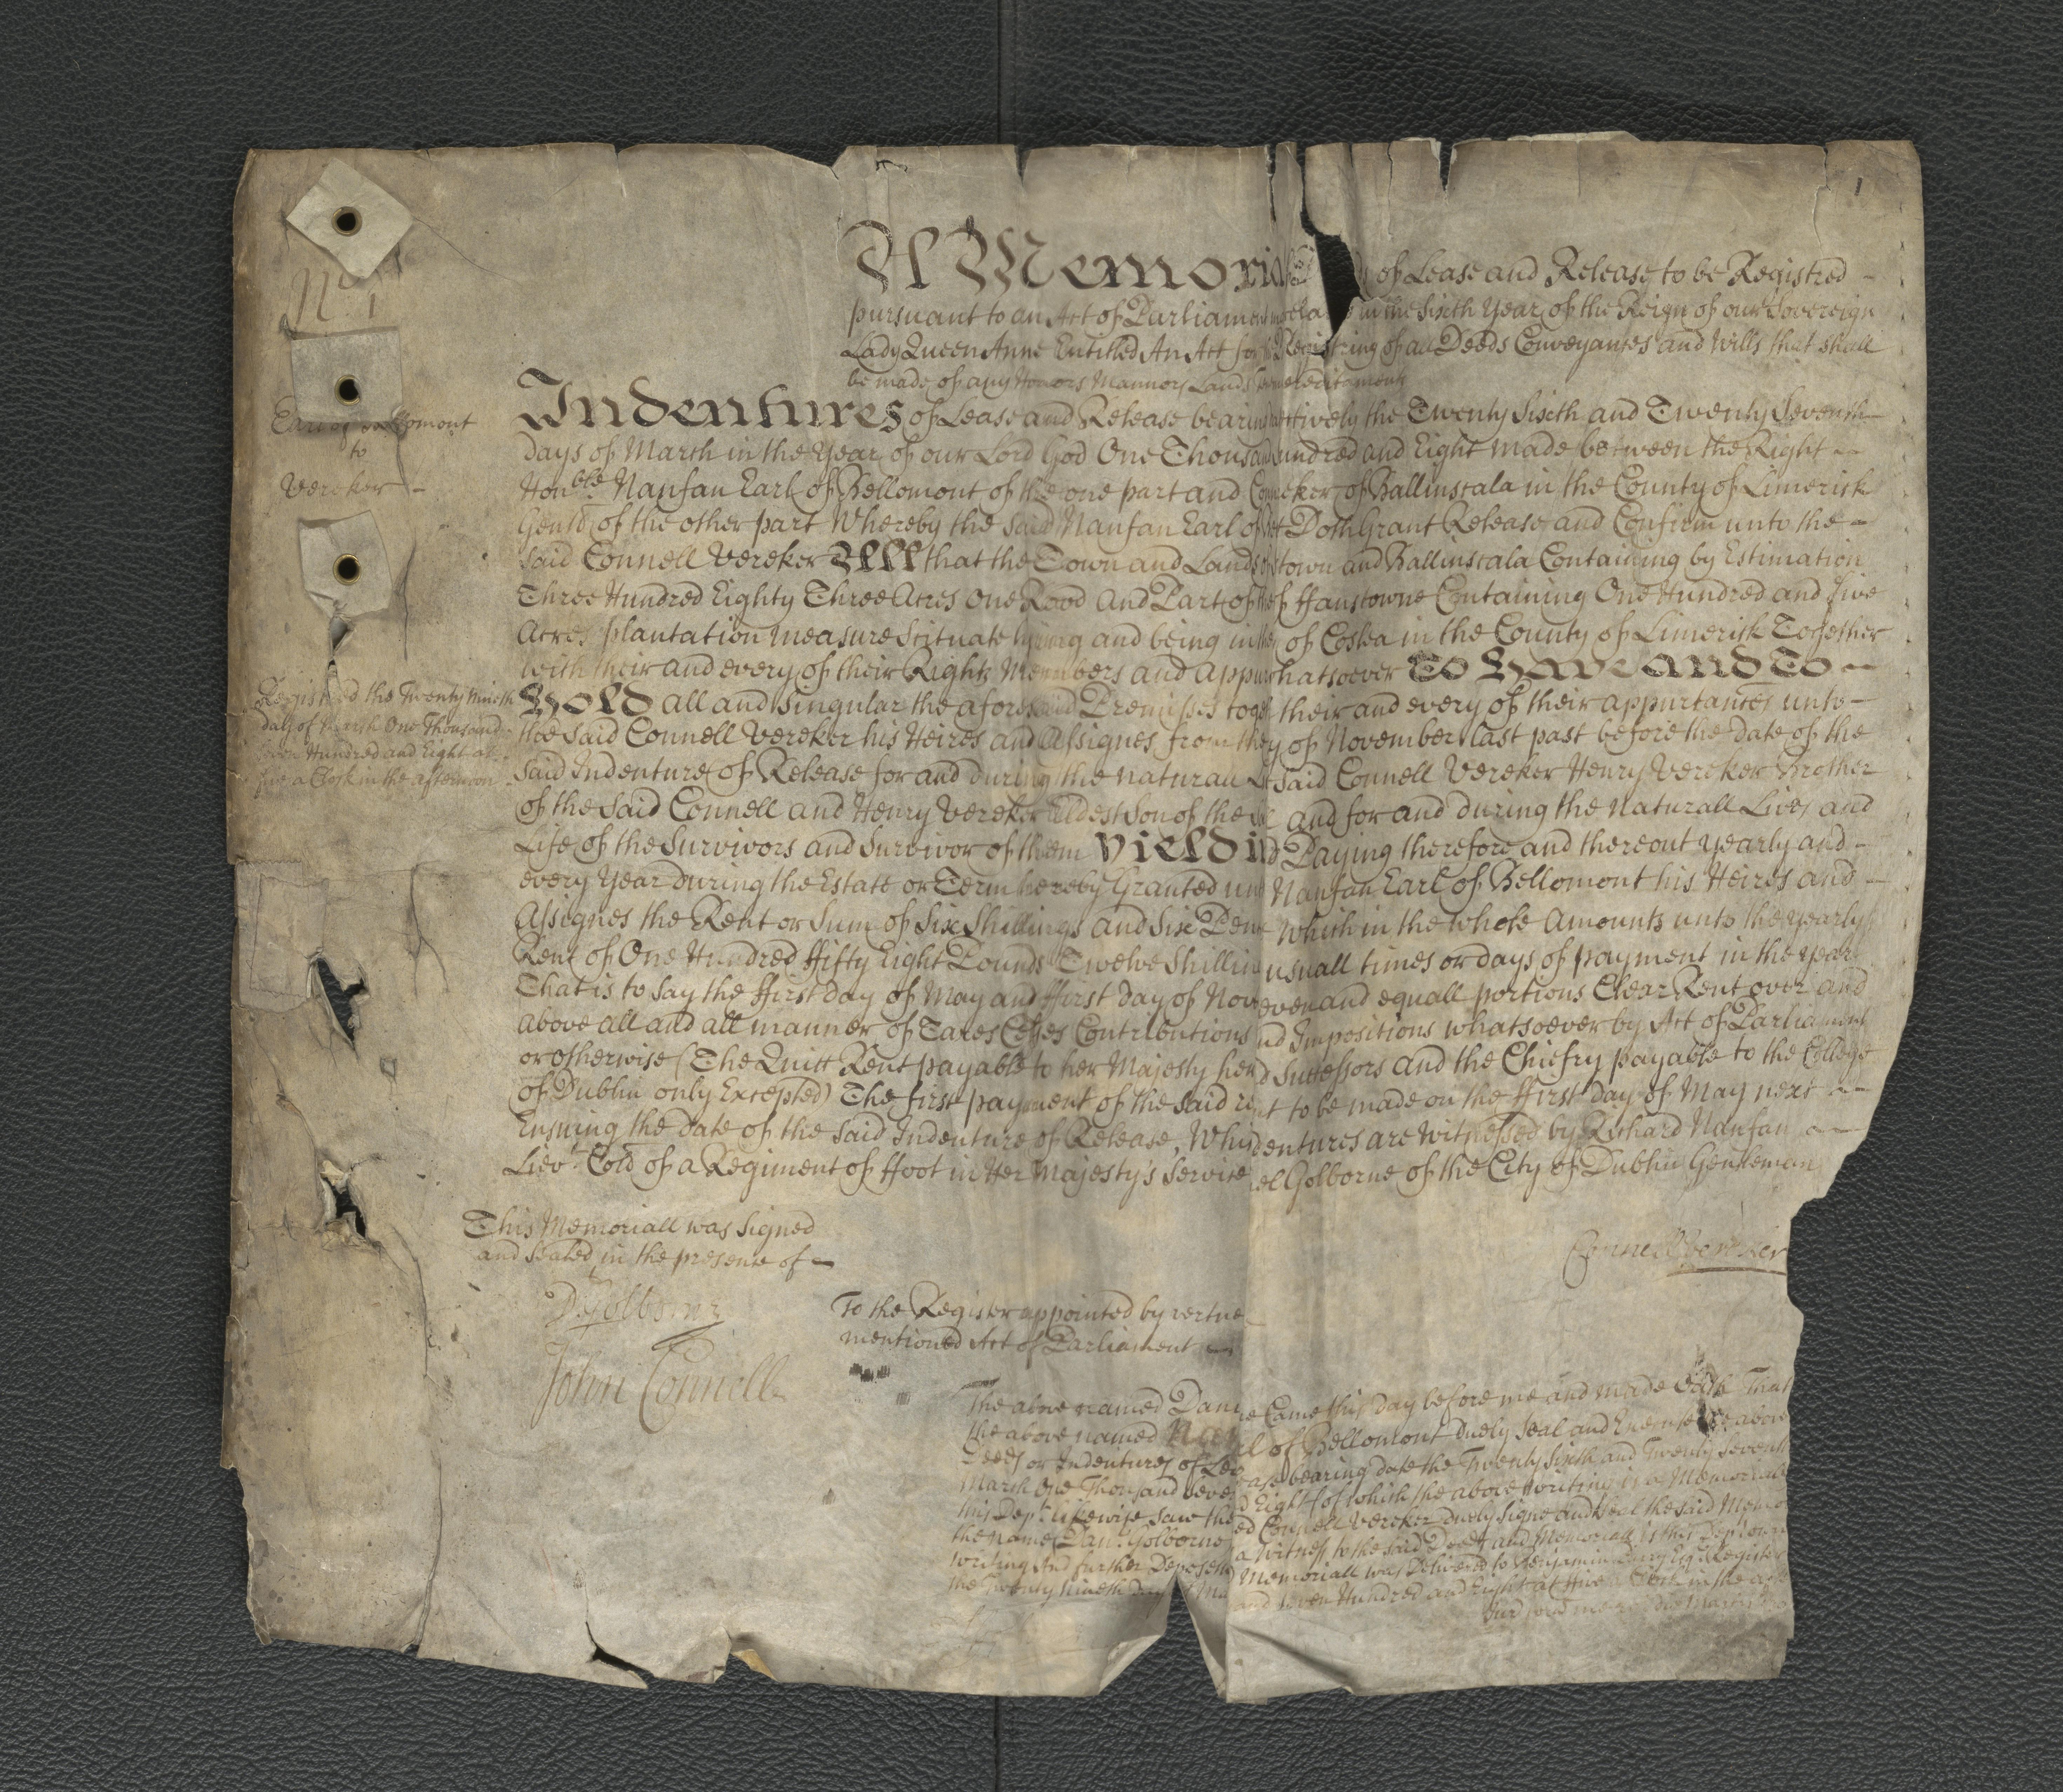 1
A Memoria of Lease and Release to be Registred
pursuant to an Act of Parliament in the Sixth Year of the Reign of our Sovereign
Lady Queen Anne Entitled An Act for the Registring of all Deeds Conveyances and Wills that shall
be made of any Honors Mannors Lands
Indentures of Lease and Release bearin ctively the Twenty Sixth and Twenty Seventh
Days of March in the Year of our Lord God One Thousan undred and Eight made between the Right
Honble Nanfan Earl of Bellomont of the one part and Con eker of Ballinscala in the County of Limerick
Gentl of the other part Whereby the said Nanfan Earl of Doth Grant Release and Confirm unto the
said Connell Vereker All that the Town and Lands of stown and Ballinscala Containing by Estimation
Three Hundred Eighty Three Acres One Rood And Part of the of ffanstowne Containing One Hundred and five
Acres plantation measure Scituate lyeing and being in the of Coslea in the County of Limerick Together
with their and every of their Rights Members and Appu hatsoever To Have and To
Hold all and singular the aforesaid Premisses toge their and every of their appurtances unto
the said Connell Vereker his Heires and Assignes from the y of November last past before the date of the
said Indenture of Release for and during the naturall L said Connell Vereker Henry Vereker Brother
of the said Connell and Henry Vereker Eldest Son of the and for and during the Naturall Lives and
Life of the Survivors and Survivor of them Yieldi d Paying therefore and thereout yearly and
every Year during the Estate or Term hereby Granted un Nanfan Earl of Bellomont his Heires and
Assignes the Rent or Sum of Six Shillings and Six Pen which in the whole Amounts unto the yearly
Rent of One Hundred ffifty Eight Pounds Twelve Shillin usuall times or days of payment in the year
That is to say the ffirst day of May and ffirst day of Nov even and equall portions Clear Rent over and
above all and all manner of Taxes Cesses Contributions nd Impositions whatsoever by Act of Parliament
or otherwise (The Quitt Rent payable to her Majesty her d Successors and the Chiefry payable to the College
of Dublin only Excepted) The first payment of the said re nt to be made on the ffirst day of May next
Ensuing the date of the said Indenture of Release, Whi dentures are Witnessed by Richard Nanfan
Lievt Coll of a Regiment of ffoot in Her Majesty's Service el Golborne of the City of Dublin Gentleman
No 1
Earl of Bellomont
to
Vereker
Registred the Twenty Nineth
day of March One Thousand
Seven Hundred and Eight at
five a Clock in the afternoon
Connell Vereker
This Memoriall was Signed
and Sealed in the presence of
D Golborne
John Connell
To the Register appointed by vertue
mentioned Act of Parliament
The above named Dani e Came this day before me and made Oath That
the above named Nan rl of Bellomont duely Seal and Execute the above
Deeds or Indentures of Lea ease bearing date the Twenty Sixth and Twenty Seventh
March One Thousand Seve d Eight of which the above writing is a Memoriall
this Dept likewise saw the ed Connell Vereker duely Signe and Seal the said Memo
the name Danl Golborne a Witness to the said Deeds and Memoriall is this Depts own
writing And further Deposeth Memoriall was Delivered to Benjamin Esqr Register
the Twenty Nineth Day of Ma and Seven Hundred and Eight at five a Clock in the aft